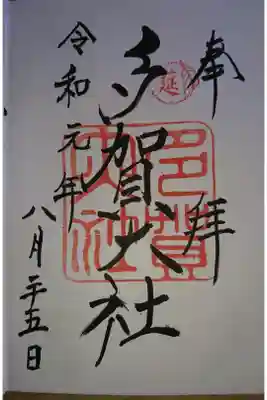 奉拝
多賀大社
令和元年
八月二十五日
延
多賀大社